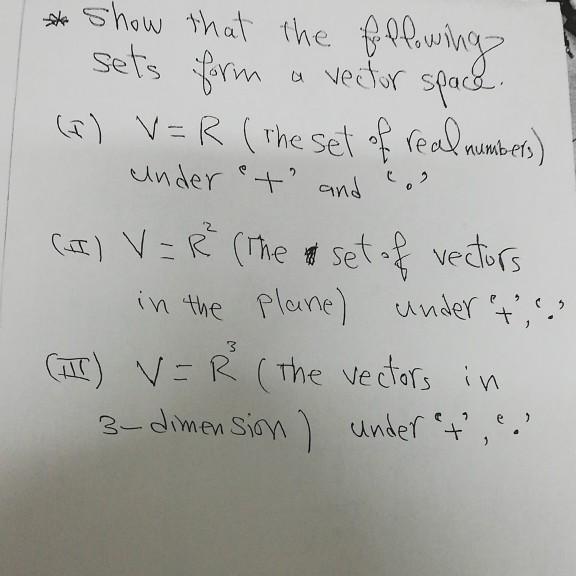 * Show that the following
sets form a vector space.
(I) V = R (The set of real numbers)
under '+' and '.'
(II) V = R² (The set of vectors
in the plane) under '+', '.'
(III) V = R³ (The vectors in
3-dimension) under '+', '.'